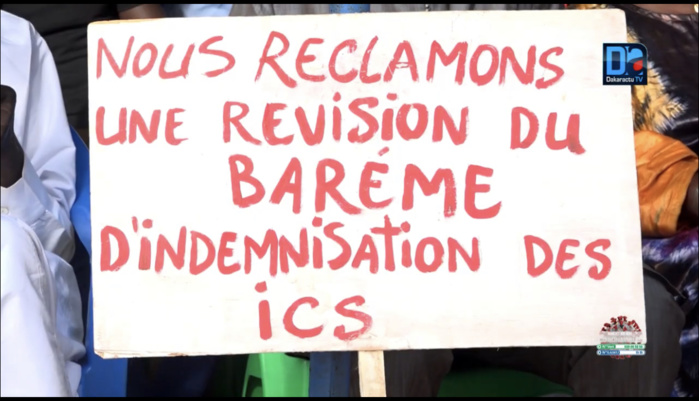 NOUS RECLAMONS
UNE REVISION DU
BARÉME
D'INDEMNISATION DES
iCS
D
Dakaractu TV